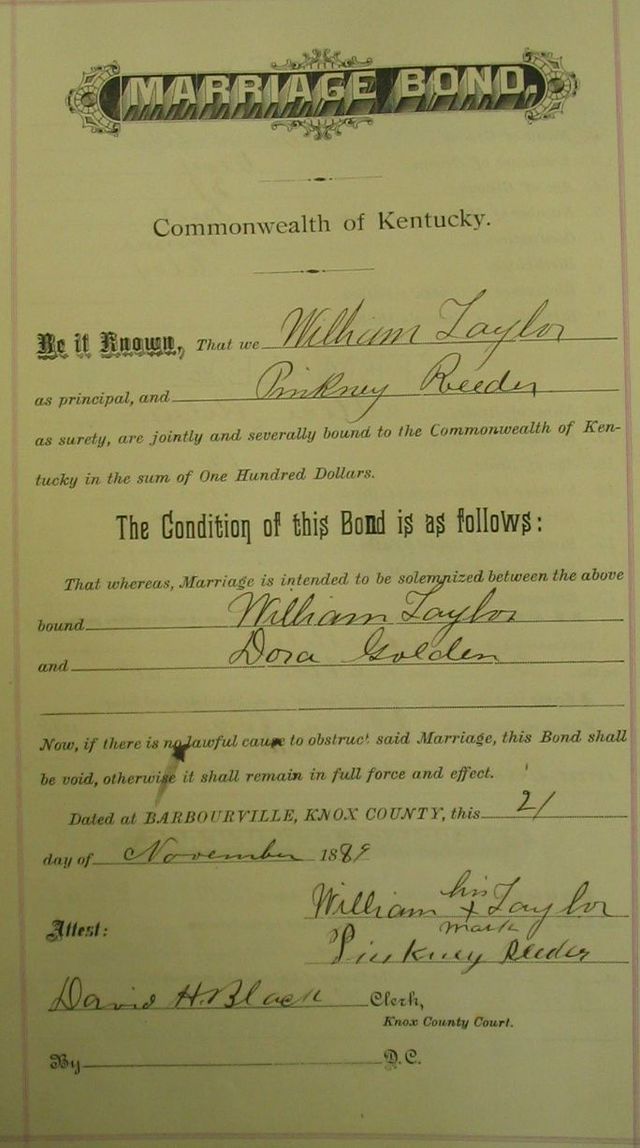 MARRIAGE BOND.
Commonwealth of Kentucky.
Be it Known, That we William Taylor
as principal, and Pinkney Reeder
as surety, are jointly and severally bound to the Commonwealth of Ken-
tucky in the sum of One Hundred Dollars.
The Condition of this Bond is as follows:
That whereas, Marriage is intended to be solemnized between the above
bound William Taylor
and Dora Golden
Now, if there is no lawful cause to obstruct said Marriage, this Bond shall
be void, otherwise it shall remain in full force and effect.
Dated at BARBOURVILLE, KNOX COUNTY, this 21
day of November 1889
William his x mark Taylor
Attest:
Pinkney Reeder
David H. Black Clerk,
Knox County Court.
By D.C.